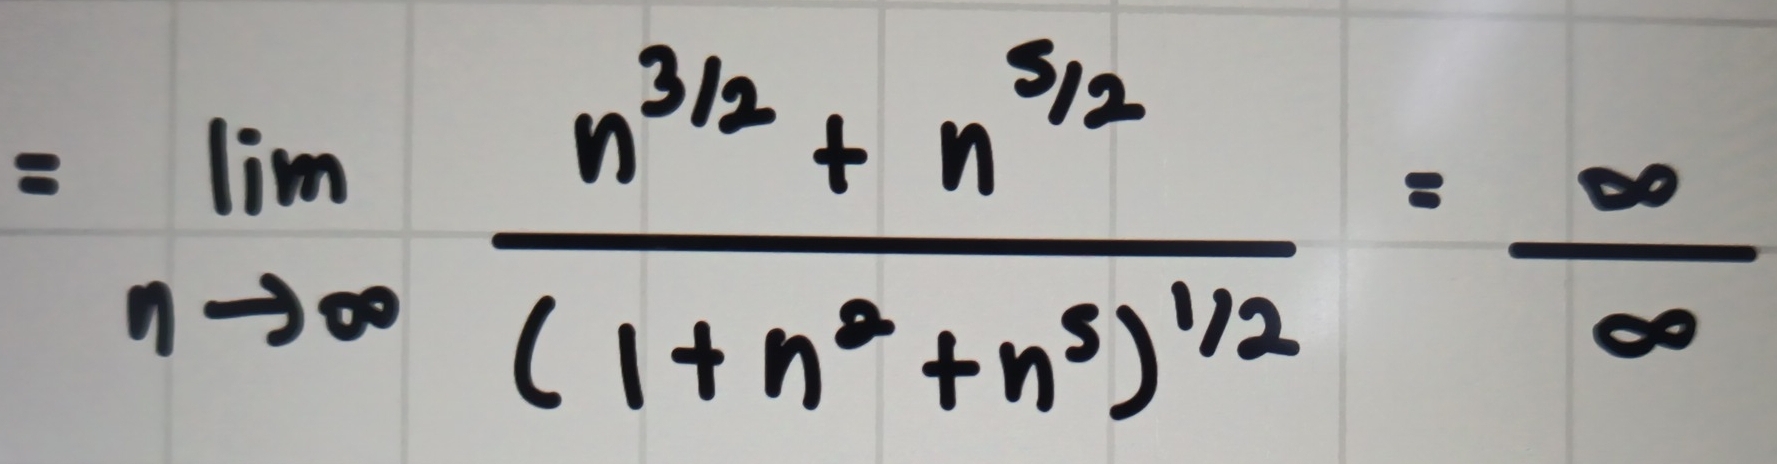 = lim n→∞ (n^{3/2} + n^{5/2}) / (1 + n^2 + n^5)^{1/2} = ∞/∞